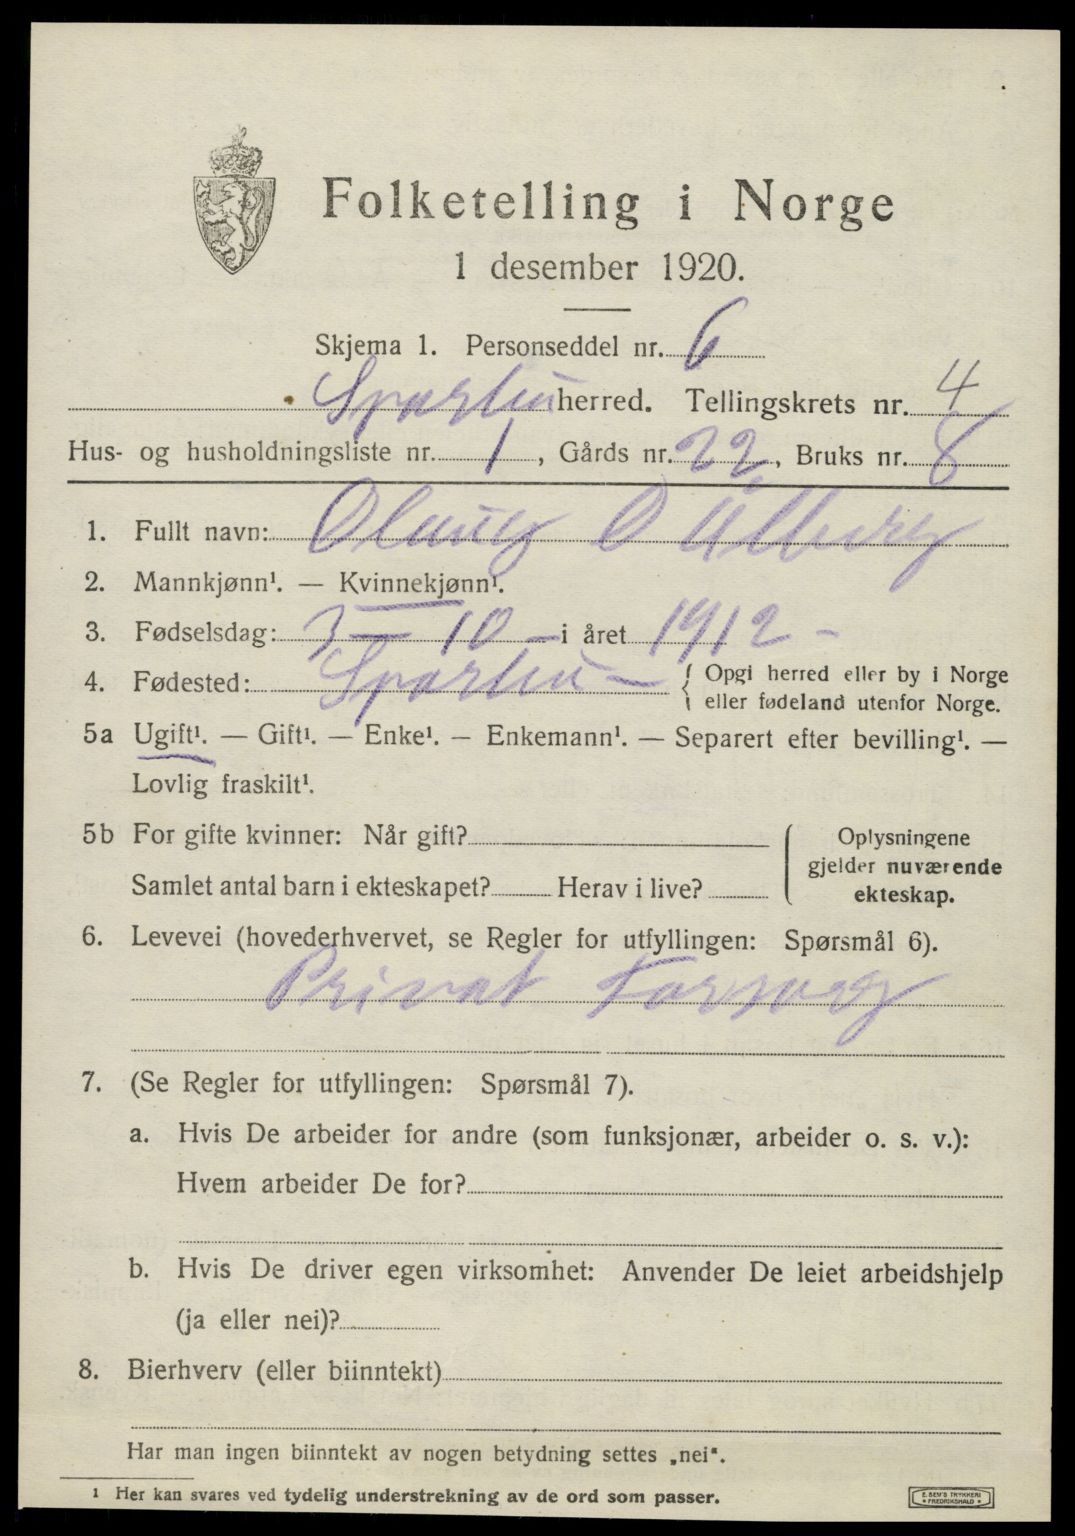 Folketelling i Norge
1 desember 1920.
Skjema 1. Personseddel nr. 6
Sparbu herred. Tellingskrets nr. 4
Hus- og husholdningsliste nr. 1, Gårds nr. 22, Bruks nr. 8
1. Fullt navn: Olaug O Ålberg
2. Mannkjønn¹. — Kvinnekjønn¹.
3. Fødselsdag: 3 — 10 — i året 1912 —
4. Fødested: Sparbu — { Opgi herred eller by i Norge
eller fødeland utenfor Norge.
5a Ugift¹. — Gift¹. — Enke¹. — Enkemann¹. — Separert efter bevilling¹. —
Lovlig fraskilt¹.
5b For gifte kvinner: Når gift?
Samlet antal barn i ekteskapet? Herav i live?
Oplysningene
gjelder nuværende
ekteskap.
6. Levevei (hovederhvervet, se Regler for utfyllingen: Spørsmål 6).
Privat Forsorg
7. (Se Regler for utfyllingen: Spørsmål 7).
a. Hvis De arbeider for andre (som funksjonær, arbeider o. s. v.):
Hvem arbeider De for?
b. Hvis De driver egen virksomhet: Anvender De leiet arbeidshjelp
(ja eller nei)?
8. Bierhverv (eller biinntekt)
Har man ingen biinntekt av nogen betydning settes „nei".
¹ Her kan svares ved tydelig understrekning av de ord som passer.
E. SEM'S TRYKKERI
• FREDRIKSHALD •